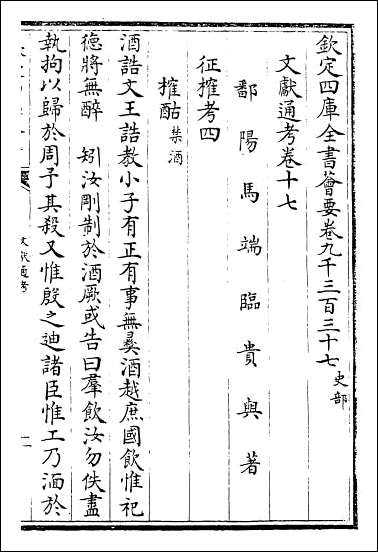 欽定四庫全書薈要卷九千三百三十七史部
文獻通考卷十七
鄱陽馬端臨貴與著
征搉考四
搉酤禁酒
酒誥文王誥教小子有正有事無彞酒越庶國飲惟祀
德將無醉 矧汝剛制於酒厥或告曰羣飲汝勿佚盡
執拘以歸於周予其殺又惟殷之迪諸臣惟工乃湎於
文獻通考
一